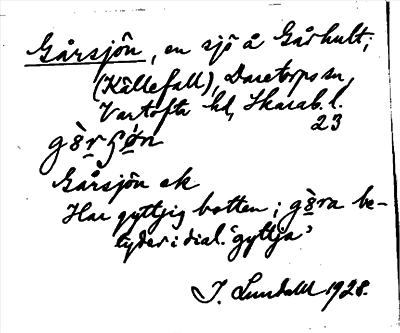 Gårsjön, en sjö å Gårhult,
(Källefall), Daretorps sn,
Vartofta hd, Skarab. l.
23
gɤ̀rʃøn
Gårsjön ek
Har gyttjig botten; gɤ̀ra be-
tyder i dial. 'gyttja'
I. Lundahl 1928.